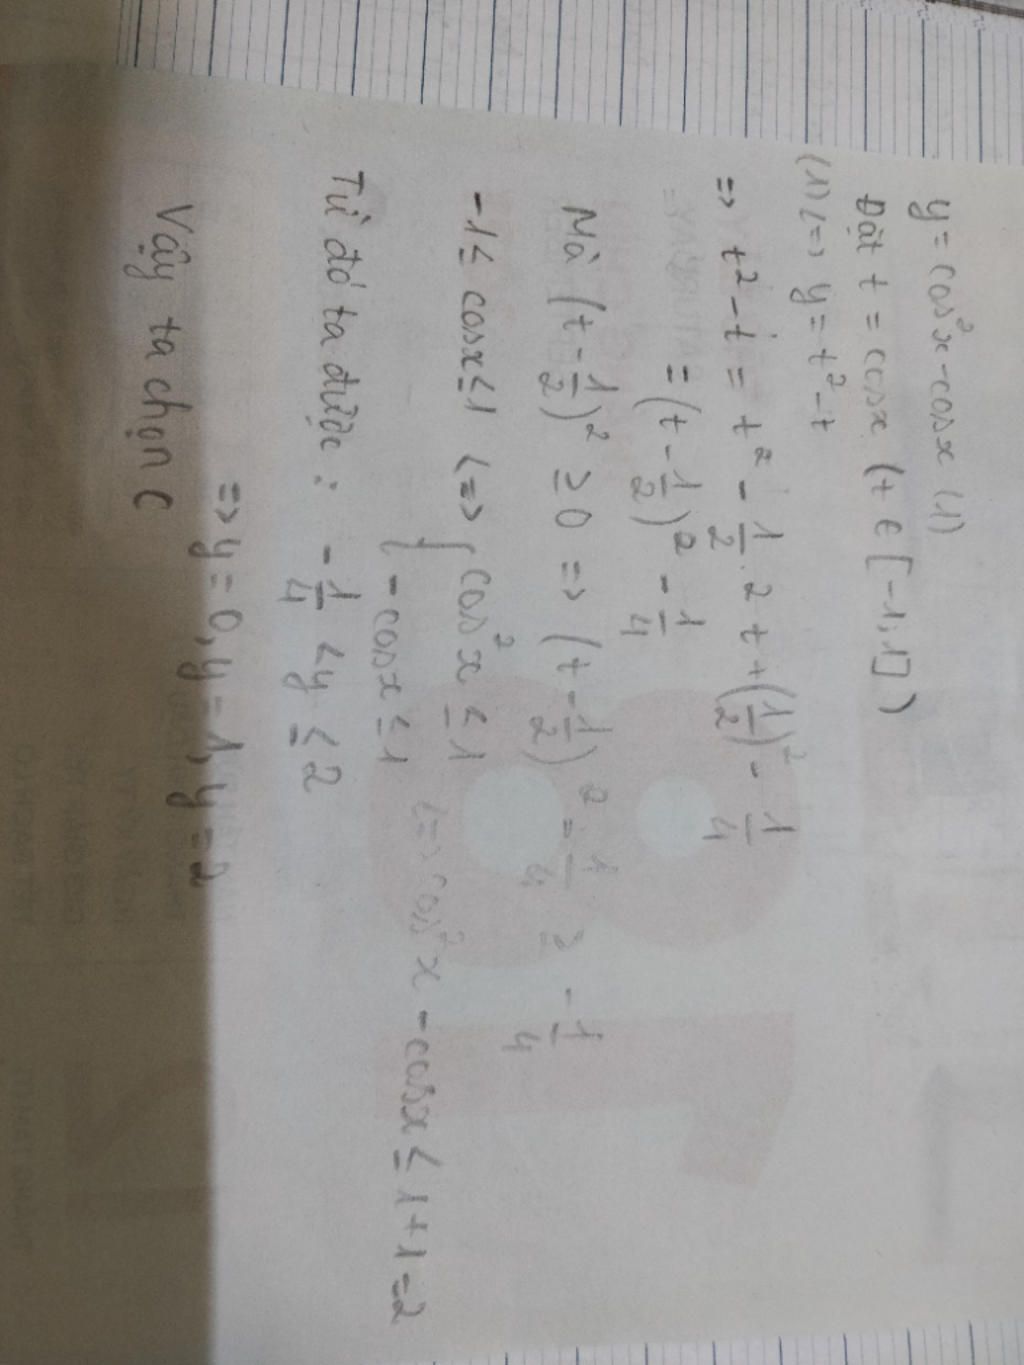 y = cos²x - cosx (1)
Đặt t = cosx (t ∈ [-1;1])
(1) <=> y = t² - t
=> t² - t = t² - 1/2 . 2t + (1/2)² - 1/4
= (t - 1/2)² - 1/4
Mà (t - 1/2)² ≥ 0 => (t - 1/2)² - 1/4 ≥ - 1/4
-1 ≤ cosx ≤ 1 <=> { cos²x ≤ 1
- cosx ≤ 1 <=> cos²x - cosx ≤ 1 + 1 = 2
Từ đó ta được : - 1/4 < y ≤ 2
=> y = 0, y = 1, y = 2
Vậy ta chọn C